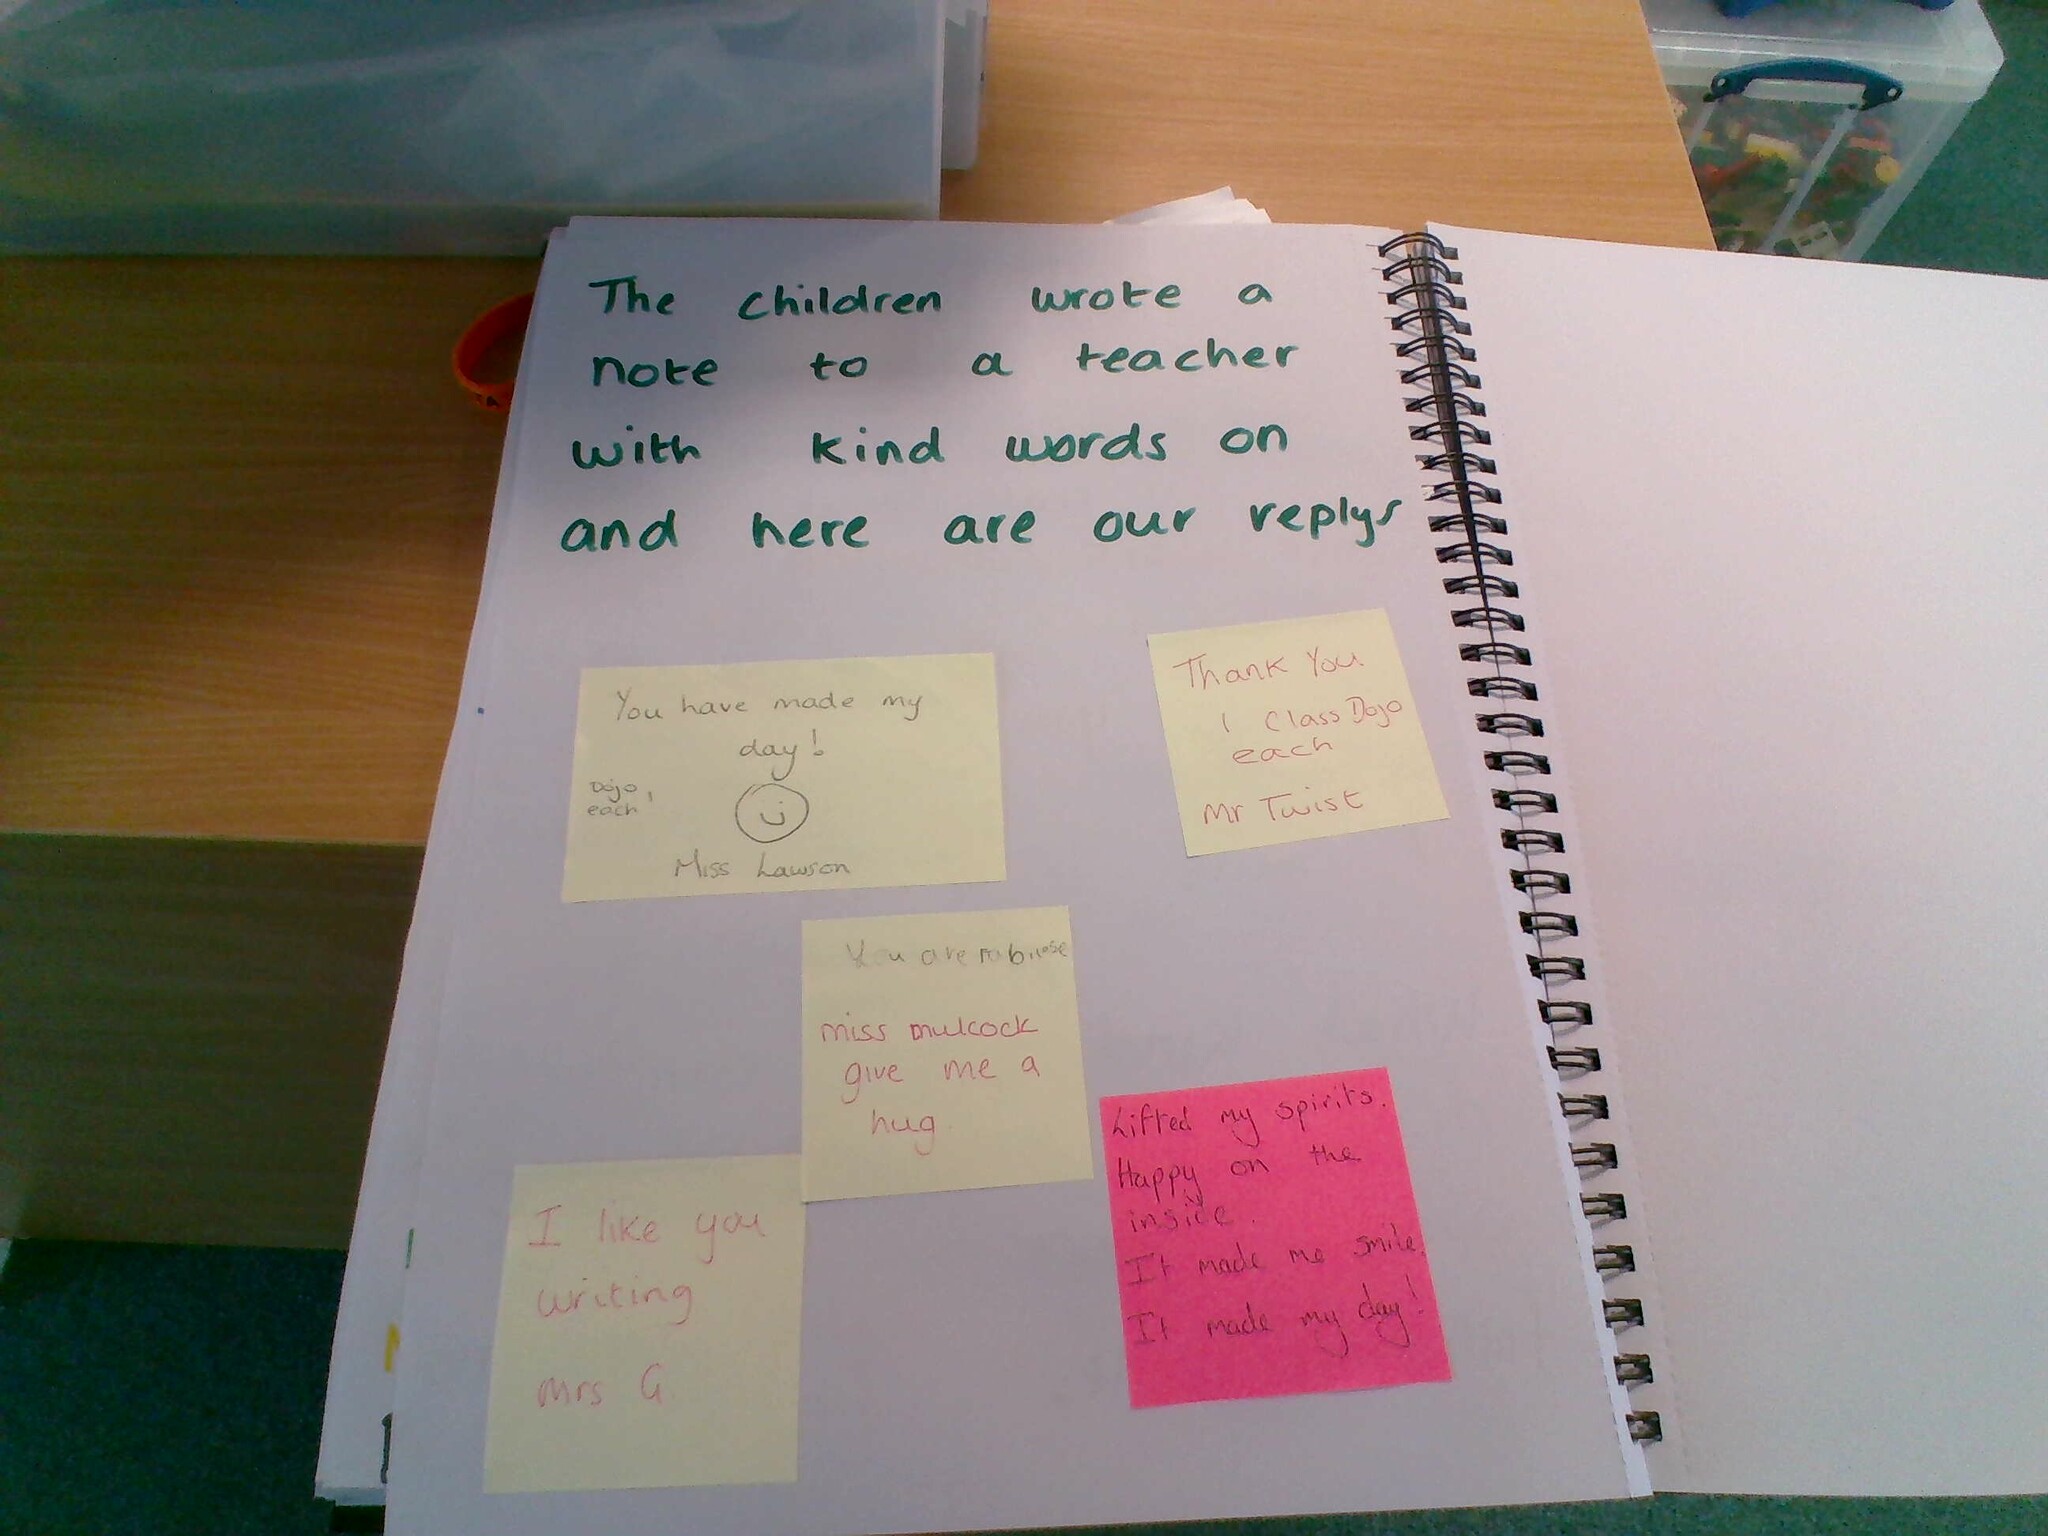 The children wrote a
note to a teacher
with kind words on
and here are our replys
You have made my
day!
Dojo
each!
Miss Lawson
Thank You
1 Class Dojo
each
Mr Twist
You are
miss mulcock
give me a
hug
Lifted my spirits.
Happy on the
inside.
It made me smile.
It made my day!
I like you
writing
Mrs G.